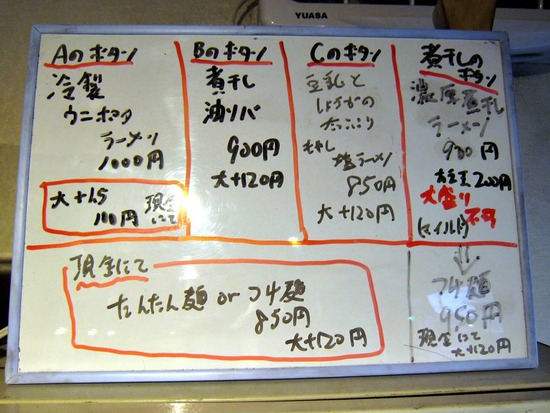 YUASA
Aのボタン
冷製
ウニトマト
ラーメン
1000円
大+1.5
110円
現金
にて
Bのボタン
煮干し
油ソバ
900円
大+120円
Cのボタン
豆乳と
しょうがの
たっぷり
もやし
塩ラーメン
850円
大+120円
煮干しの
ボタン
濃厚煮干し
ラーメン
900円
200円
大盛り
不可
(マイルド)
↓
つけ麺
950円
現金にて
大+120円
現金にて
たんたん麺orつけ麺
850円
大+120円